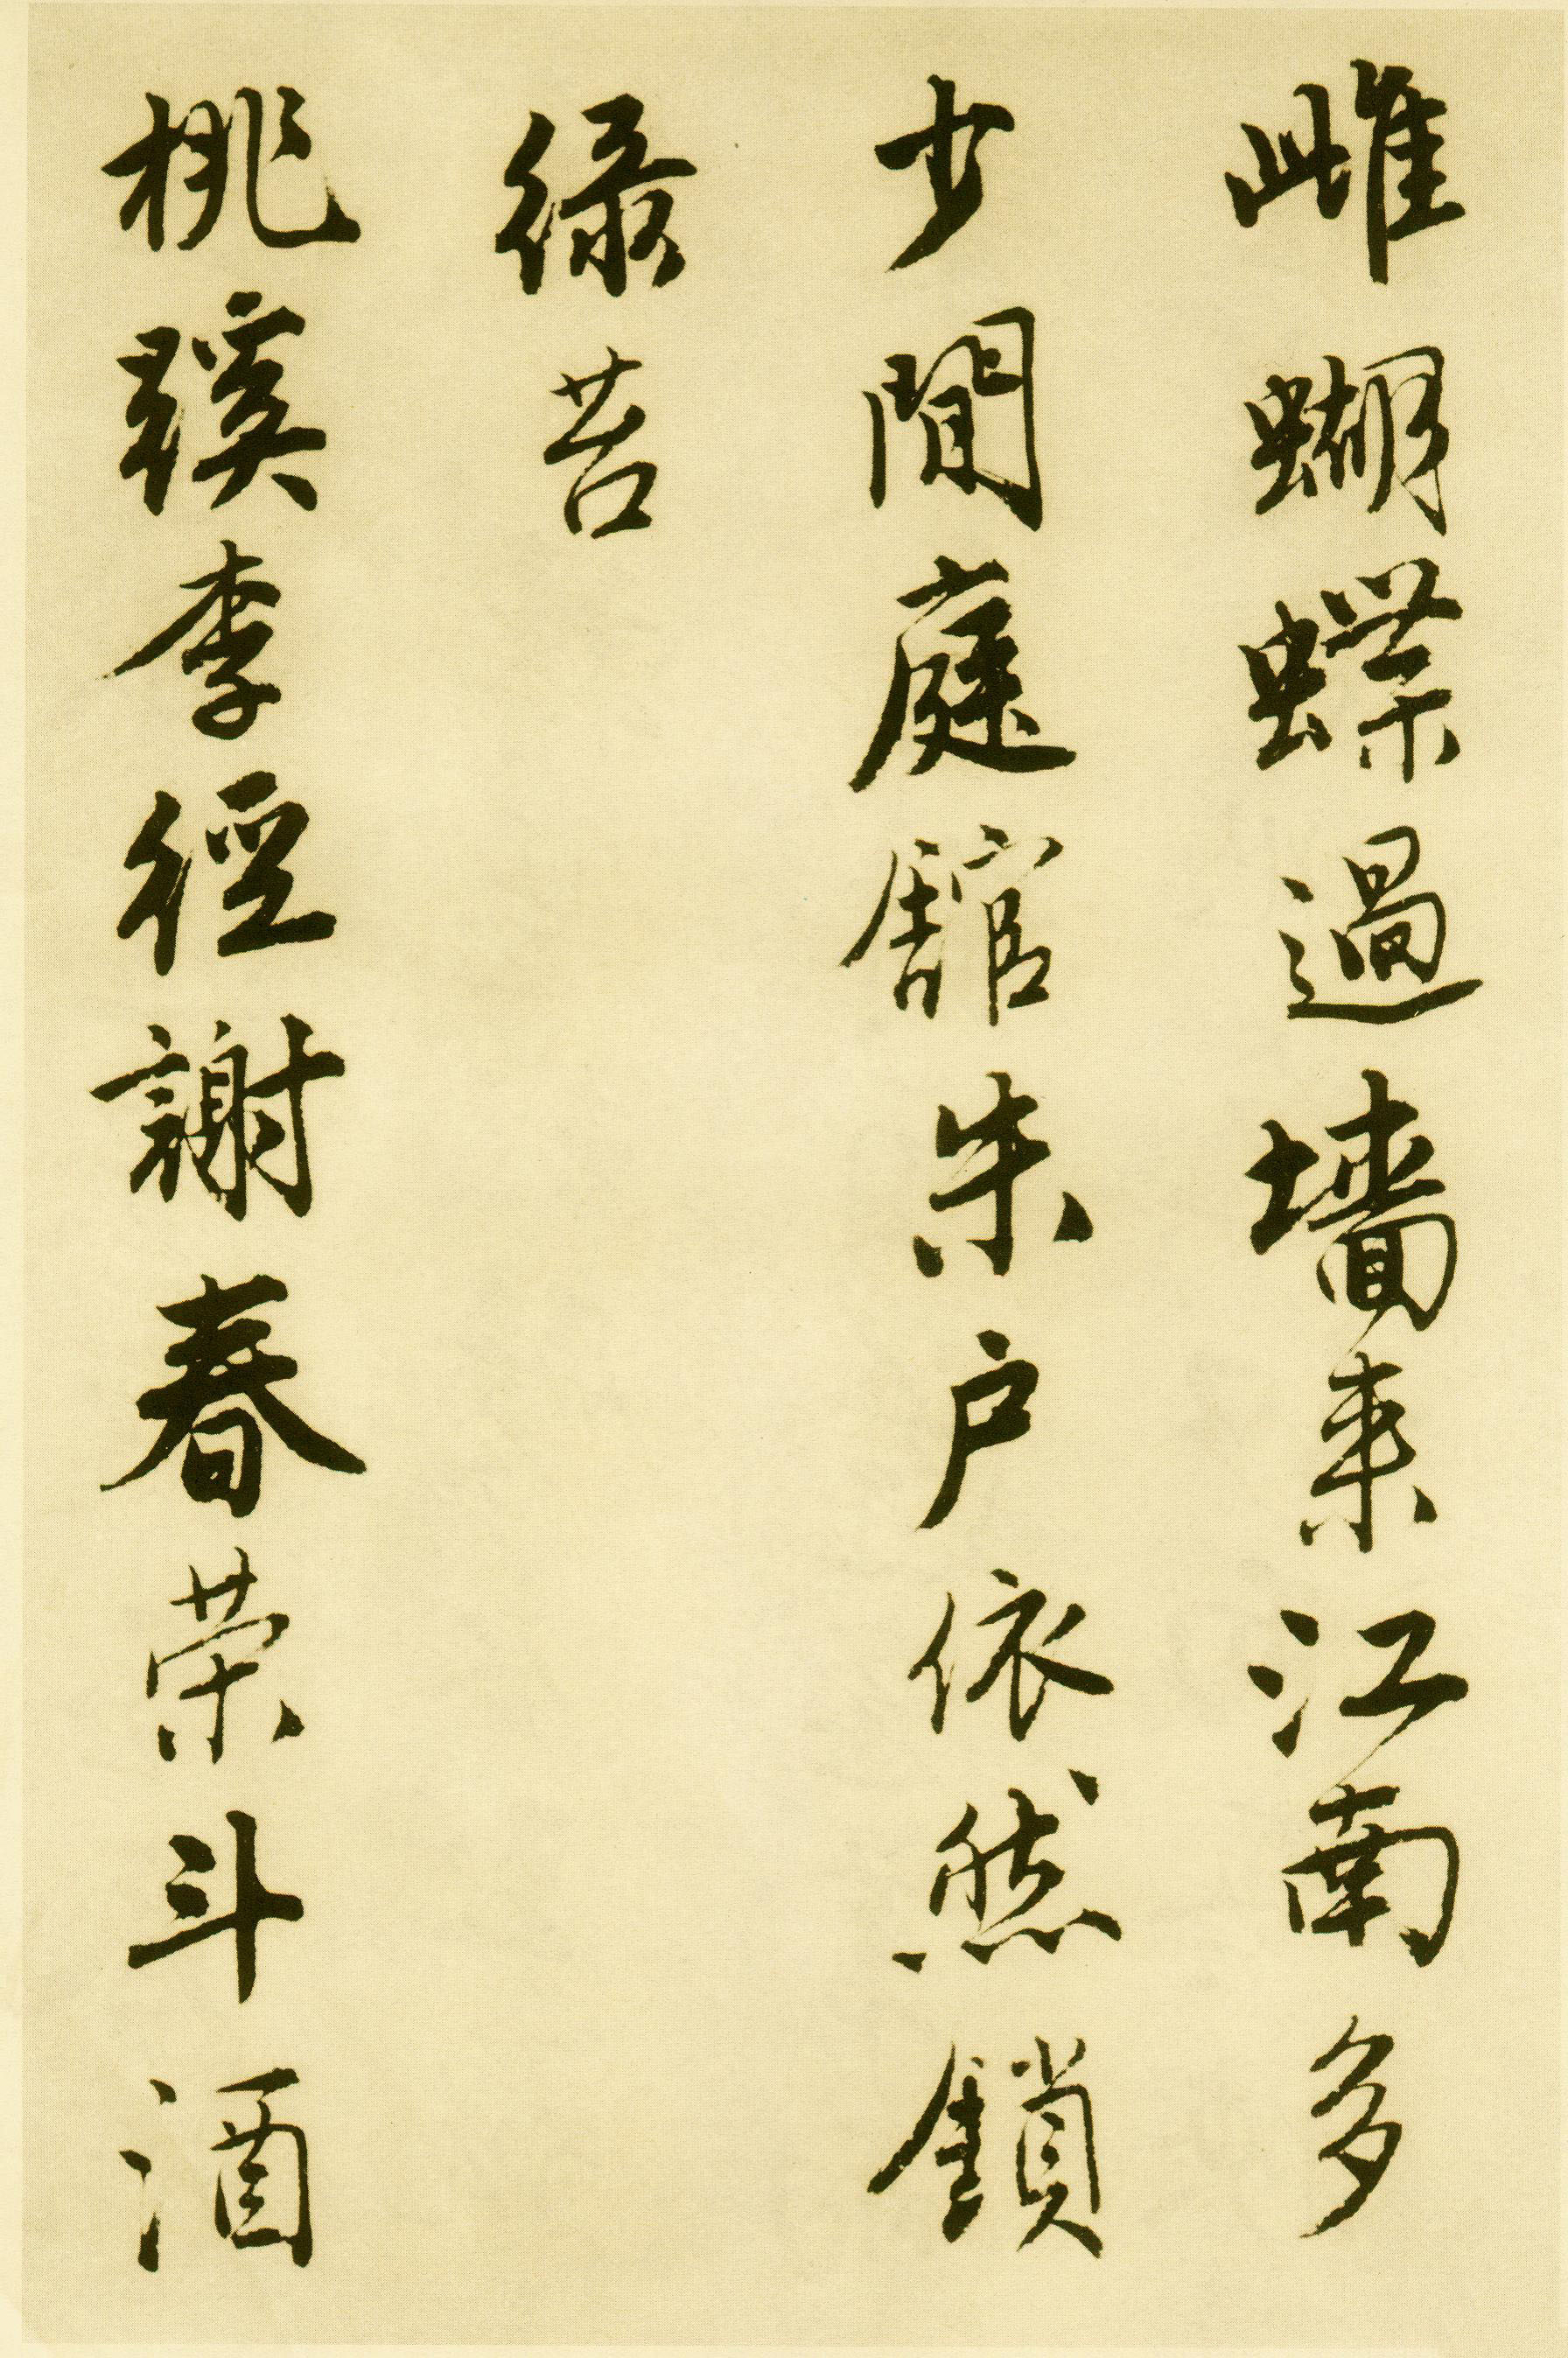 雌蝴蝶過墻来江南多
少閒庭館朱户依然鎖
緑苔
桃蹊李徑謝春荣斗酒